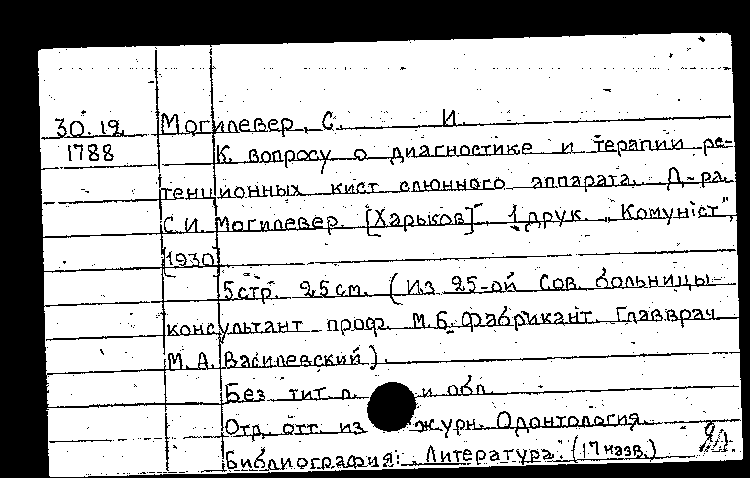 30.12 Могилевер, С. И.
1788 К вопросу о диагностике и терапии ре-
тенционных кист слюнного аппарата. Д-ра
С.И. Могилевер. [Харьков], 1 друк. „Комуніст",
[1930]
5 стр. 25 см. (Из 25-ой Сов. больницы
консультант проф. М.Б. Фабрикант. Главврач
М.А. Василевский).
Без тит. л. и обл.
Отд. отт. из журн. Одонтология.
Библиография: „Литература" (17 назв.)